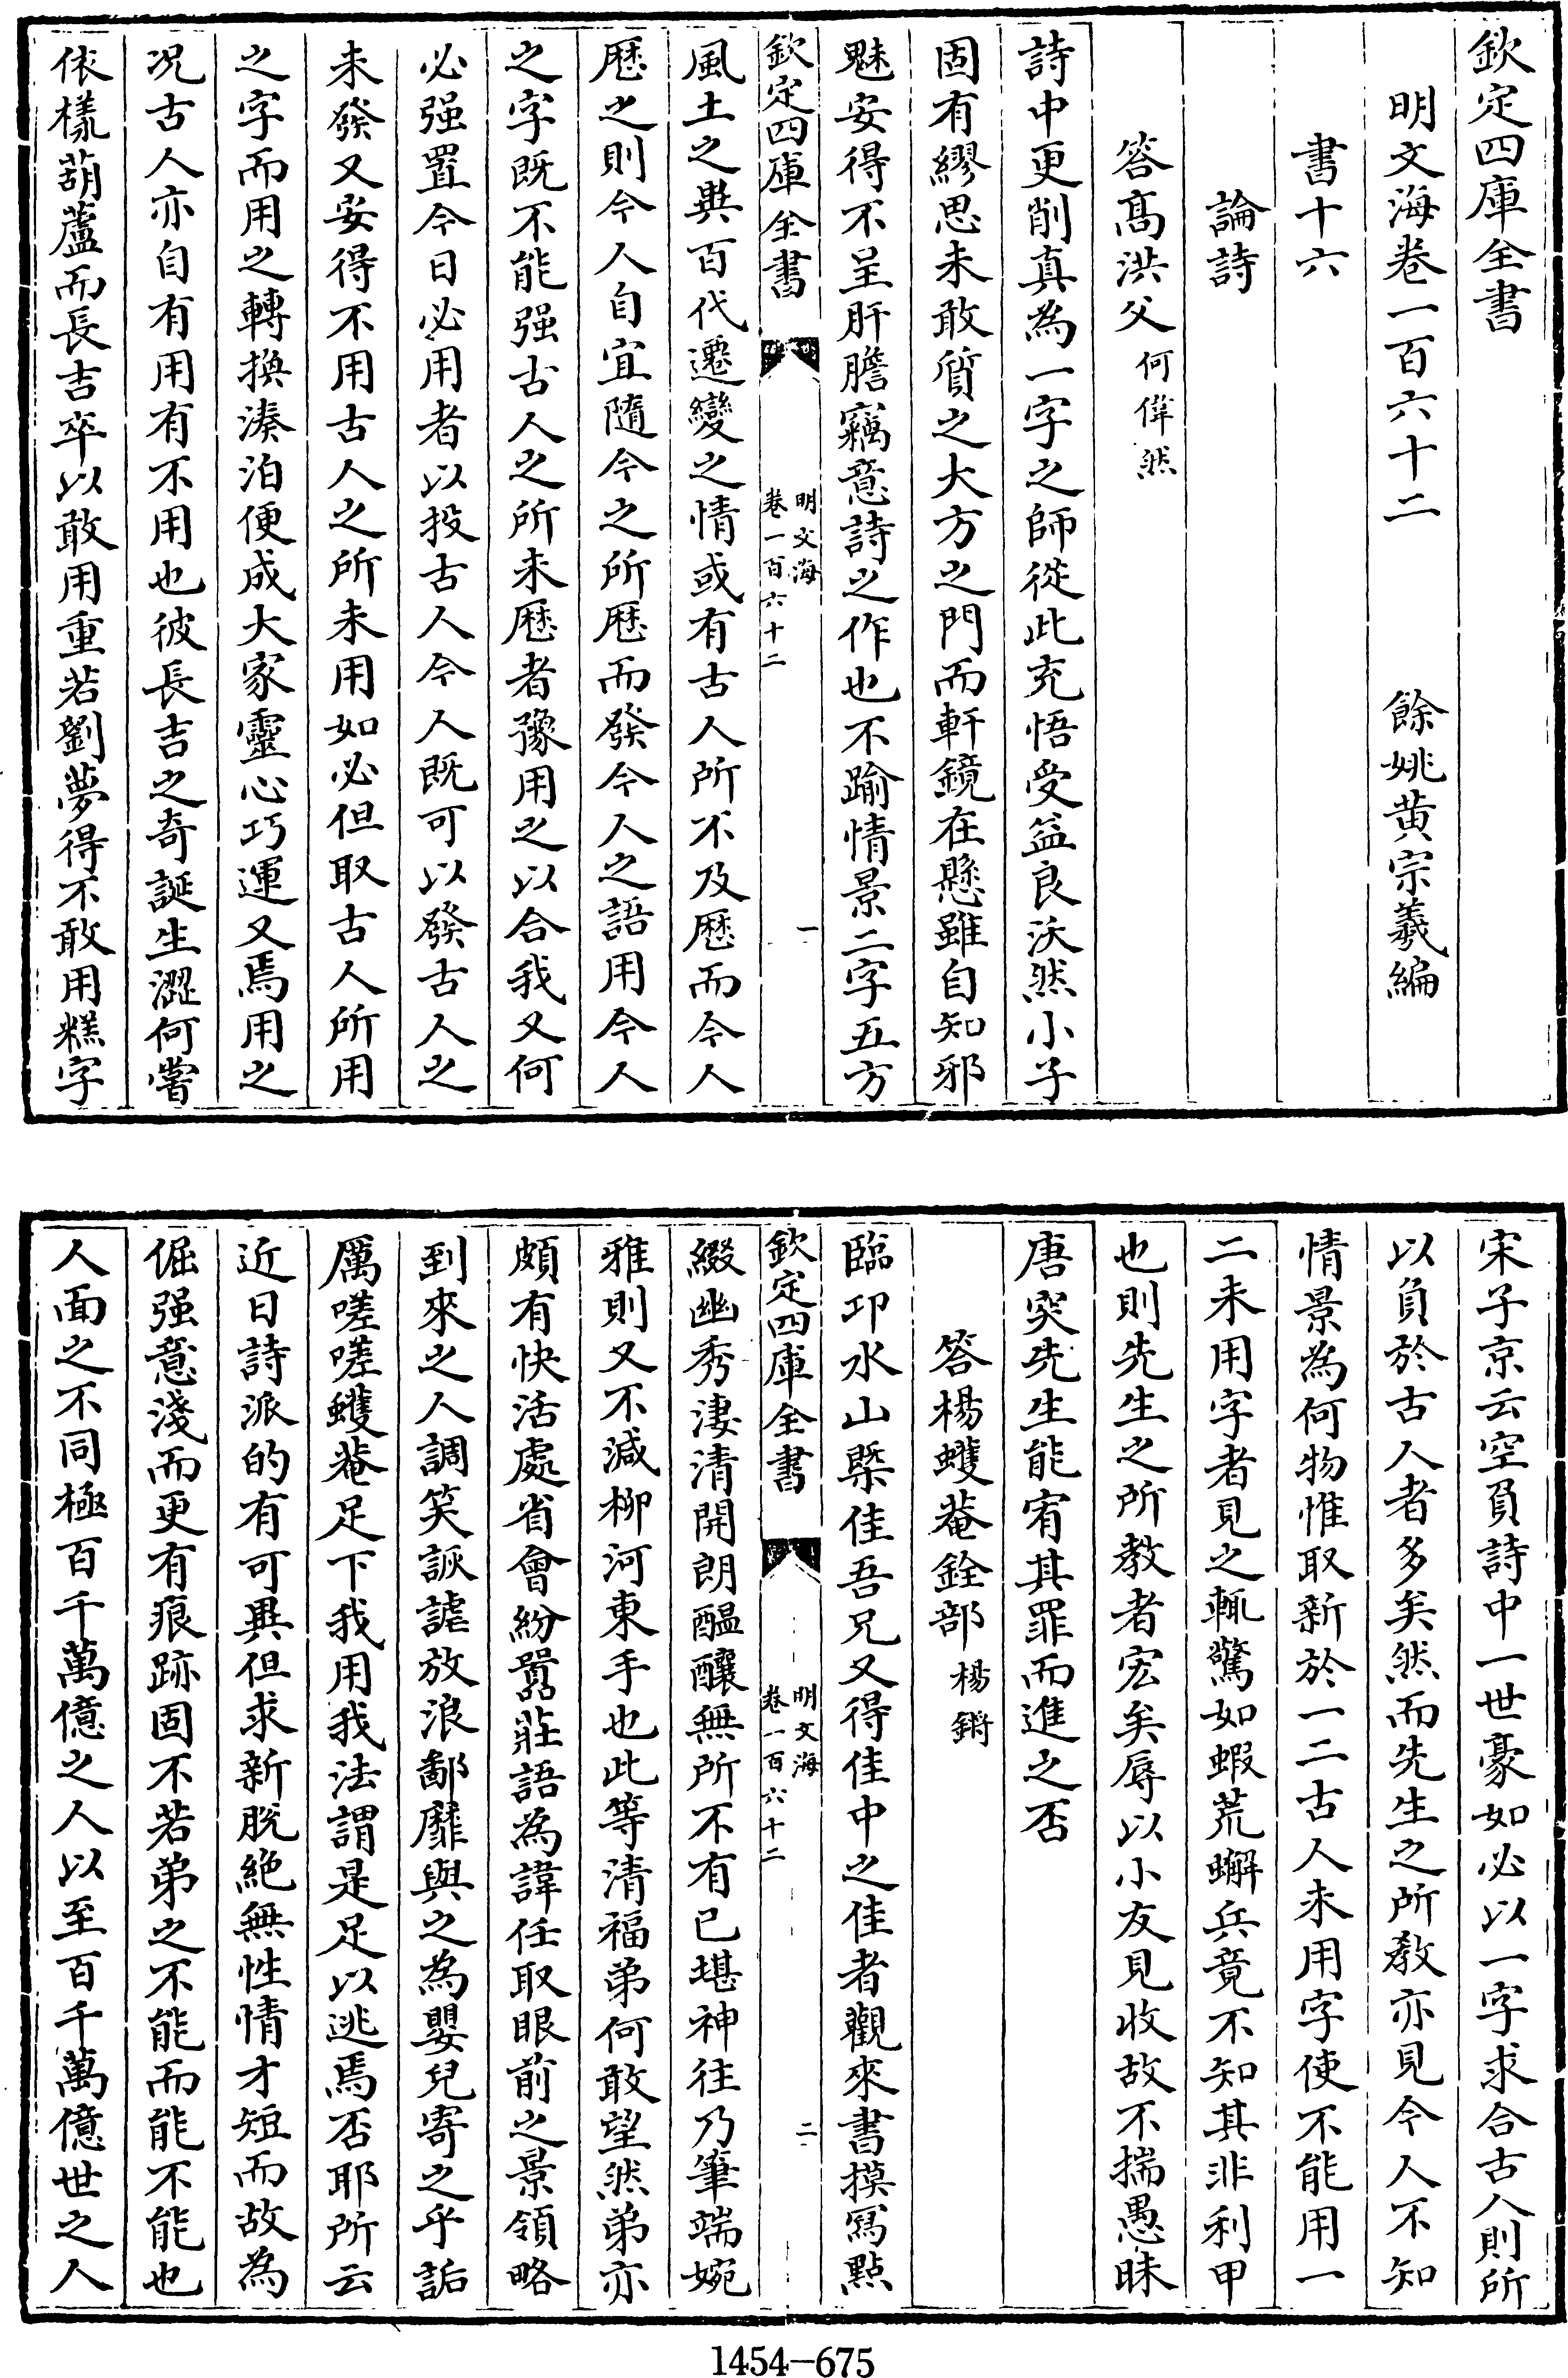 欽定四庫全書
明文海卷一百六十二　餘姚黄宗羲編
書十六
論詩
答髙洪父何偉然
詩中更削真為一字之師從此充悟受益良沃然小子
固有繆思未敢質之大方之門而軒鏡在懸雖自知邪
魅安得不呈肝膽竊意詩之作也不踰情景二字五方
欽定四庫全書
明文海
卷一百六十二
一
風土之異百代遷變之情或有古人所不及歴而今人
歴之則今人自宜隨今之所歴而發今人之語用今人
之字既不能强古人之所未歴者豫用之以合我又何
必强置今日必用者以投古人今人既可以發古人之
未發又安得不用古人之所未用如必但取古人所用
之字而用之轉換湊泊便成大家靈心巧運又焉用之
况古人亦自有用有不用也彼長吉之奇誕生澀何嘗
依樣葫蘆而長吉卒以敢用重若劉夢得不敢用糕字
宋子京云空負詩中一世豪如必以一字求合古人則所
以負於古人者多矣然而先生之所教亦見今人不知
情景為何物惟取新於一二古人未用字使不能用一
二未用字者見之輒驚如蝦荒蠏兵竟不知其非利甲
也則先生之所教者宏矣辱以小友見收故不揣愚昧
唐突先生能宥其罪而進之否
答楊蠖菴銓部楊鏘
臨邛水山槩佳吾兄又得佳中之佳者觀來書摸寫點
欽定四庫全書
明文海
卷一百六十二
二
綴幽秀淒清開朗醖釀無所不有已堪神往乃筆端婉
雅則又不減栁河東手也此等清福弟何敢望然弟亦
頗有快活處省會紛囂莊語為諱任取眼前之景領略
到來之人調笑詼謔放浪鄙靡與之為嬰兒寄之乎詬
厲嗟嗟蠖菴足下我用我法謂是足以逃焉否耶所云
近日詩派的有可異但求新脱絶無性情才短而故為
倔强意淺而更有痕跡固不若弟之不能而能不能也
人面之不同極百千萬億之人以至百千萬億世之人
1454-675